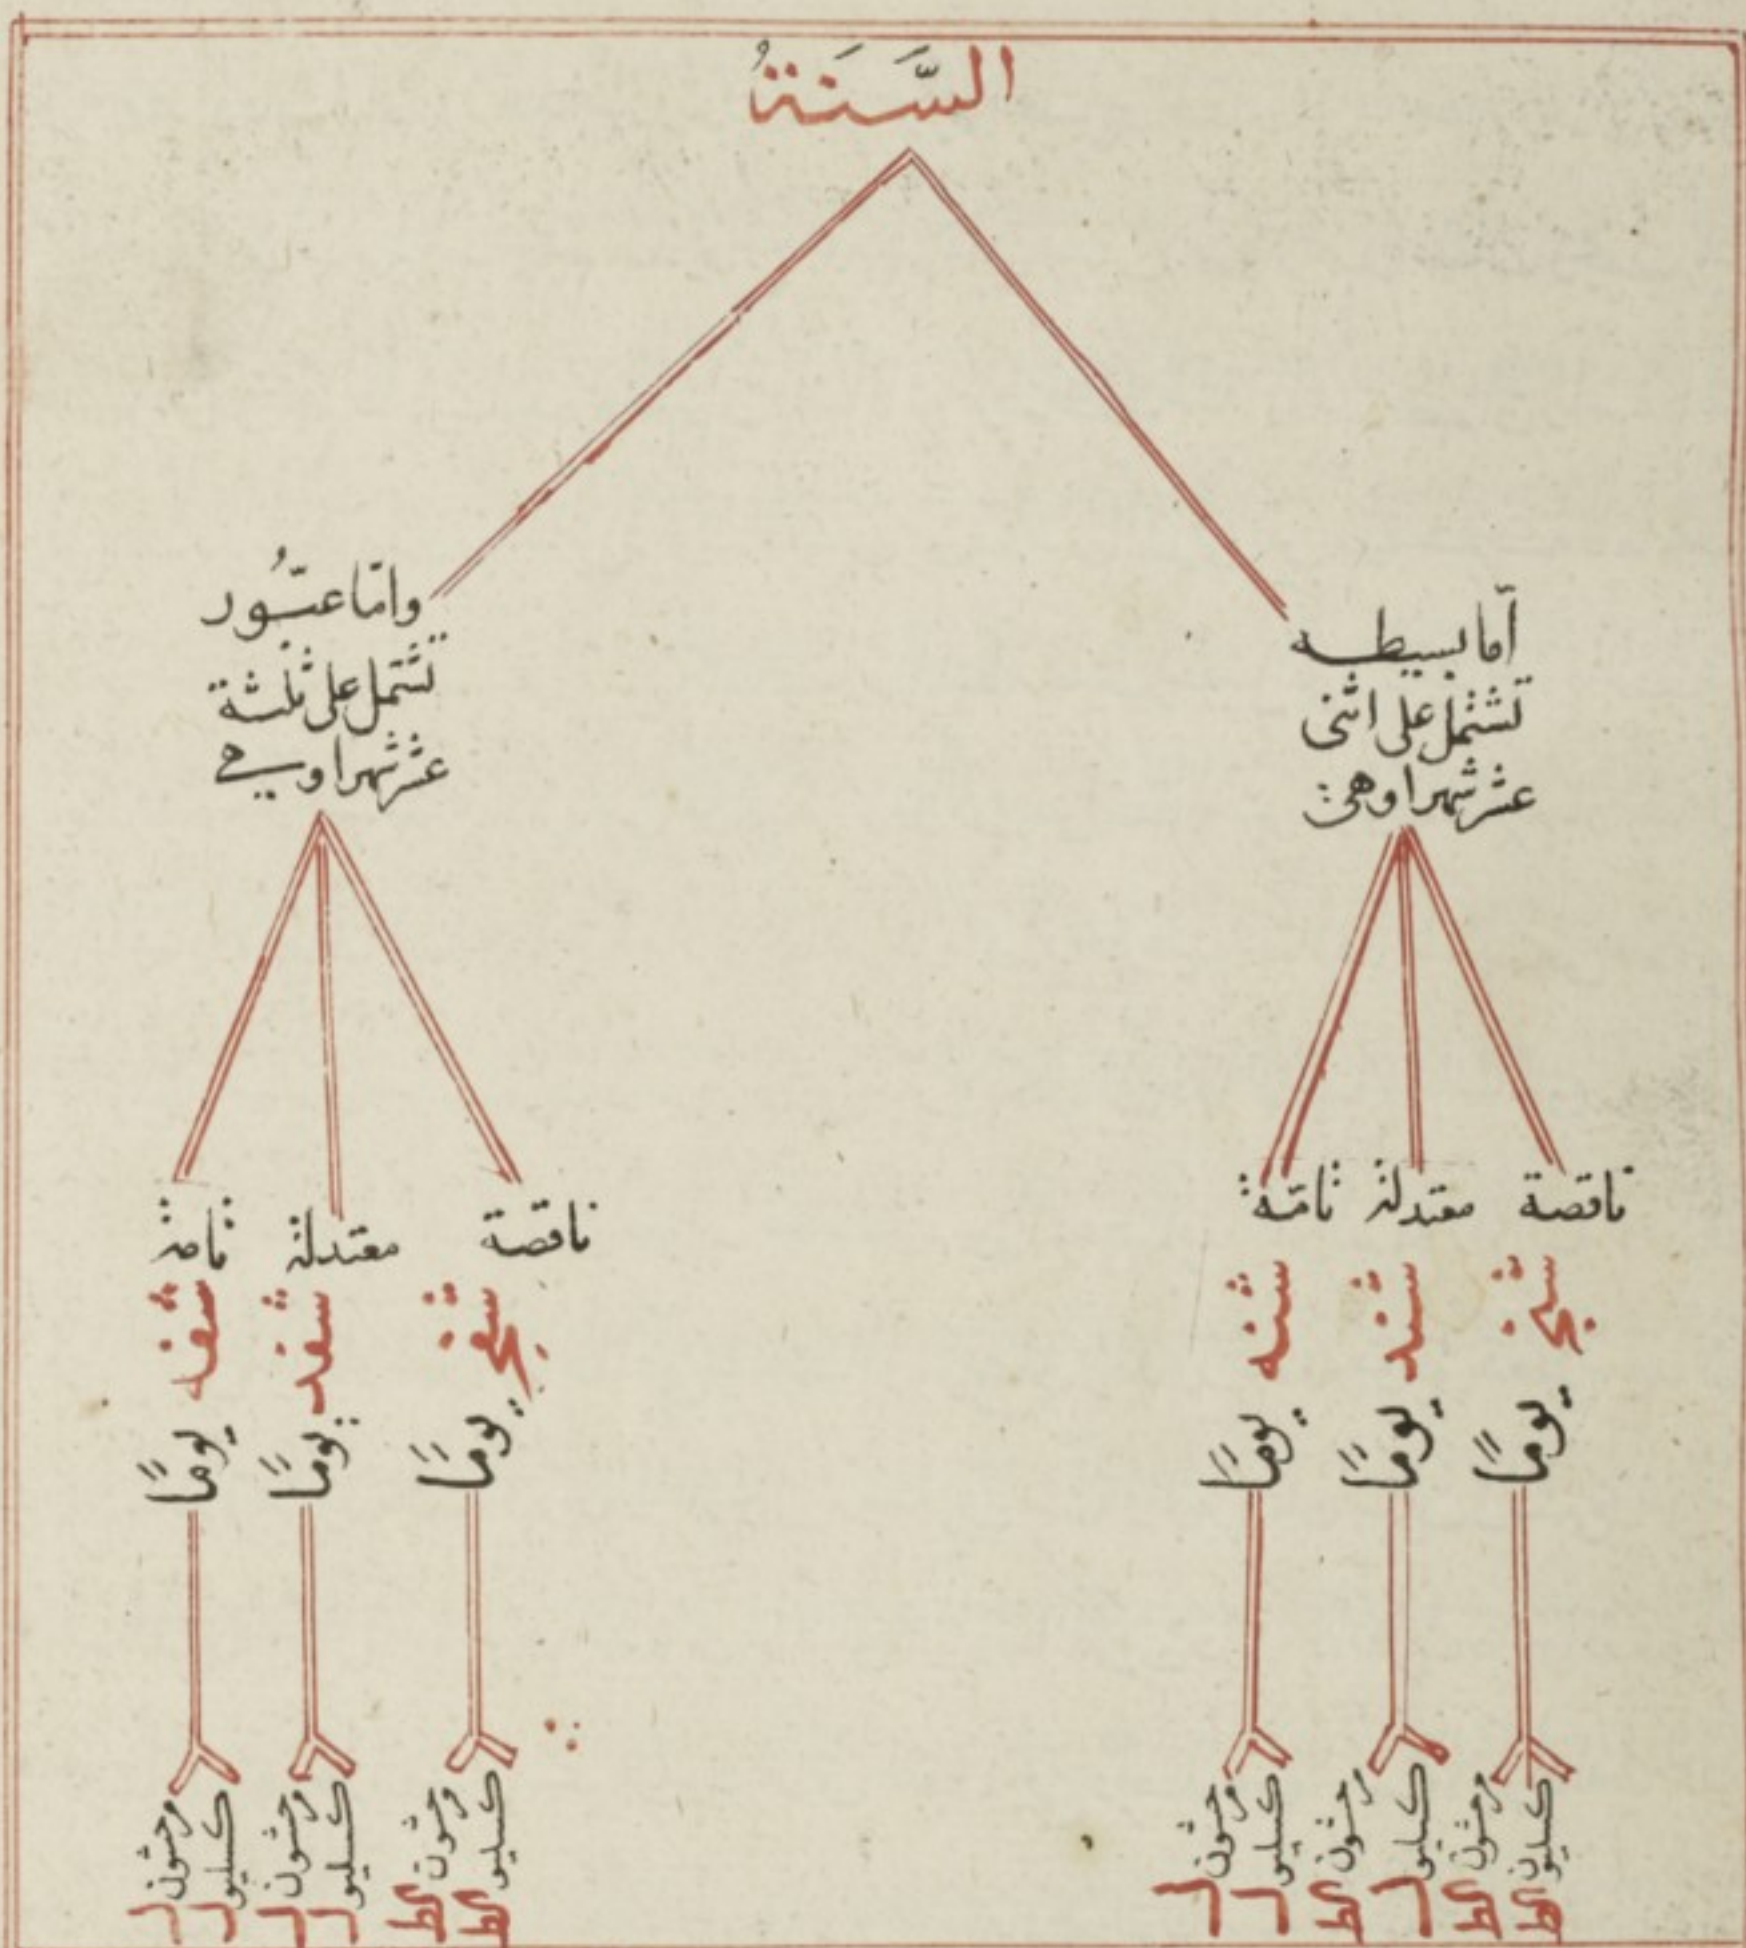 السَّنَةُ
أمّا بسيطه
تشتمل على اثنى
عشر شهرا وهى
واما عبُّور
تشتمل على ثلثة
عشر شهرا وهي
ناقصة معتدلة تامّة
شنج شند شنه
يومًا يومًا يومًا
كسليون كط
مرحشون كط
كسليو ل
مرحشون كط
كسليو ل
مرحشون ل
ناقصة معتدلة تامة
شفج شفد شفه
يومًا يومًا يومًا
كسليو كط
مرحشون كط
كسليو ل
مرحشون ل
كسليو ل
مرحشون ل